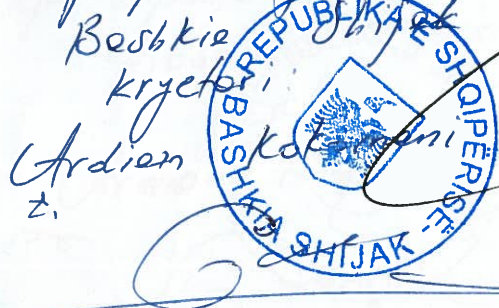 Bashkia Shijak
kryetari
Ardian Kokomani
z.
REPUBLIKA E SHQIPËRISË-
BASHKIA SHIJAK